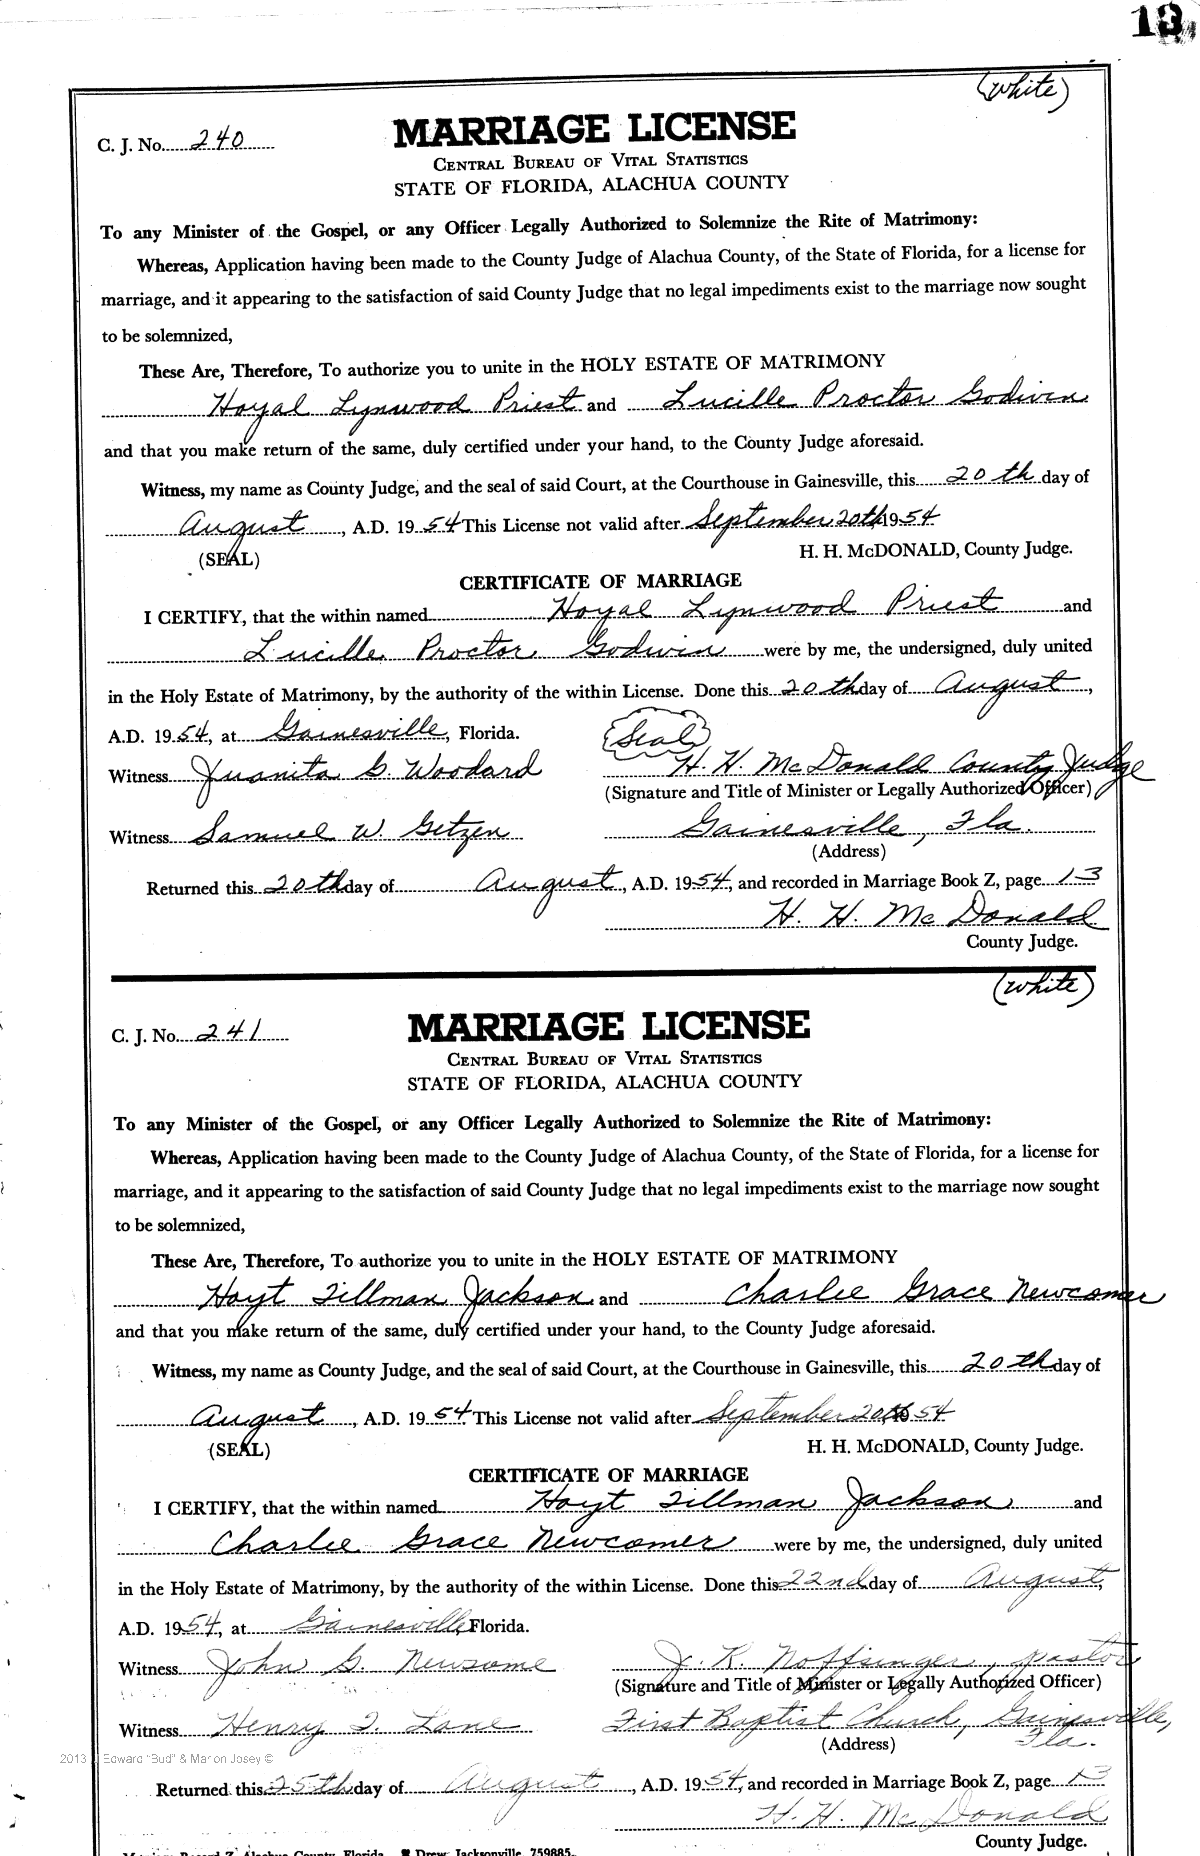 13
(White)
C. J. No. 240
MARRIAGE LICENSE
CENTRAL BUREAU OF VITAL STATISTICS
STATE OF FLORIDA, ALACHUA COUNTY
To any Minister of the Gospel, or any Officer Legally Authorized to Solemnize the Rite of Matrimony:
Whereas, Application having been made to the County Judge of Alachua County, of the State of Florida, for a license for
marriage, and it appearing to the satisfaction of said County Judge that no legal impediments exist to the marriage now sought
to be solemnized,
These Are, Therefore, To authorize you to unite in the HOLY ESTATE OF MATRIMONY
Hoyal Lynwood Priest and Lucille Proctor Godwin
and that you make return of the same, duly certified under your hand, to the County Judge aforesaid.
Witness, my name as County Judge, and the seal of said Court, at the Courthouse in Gainesville, this 20th day of
August, A.D. 1954 This License not valid after September 20th 1954
(SEAL) H. H. McDONALD, County Judge.
CERTIFICATE OF MARRIAGE
I CERTIFY, that the within named Hoyal Lynwood Priest and
Lucille Proctor Godwin were by me, the undersigned, duly united
in the Holy Estate of Matrimony, by the authority of the within License. Done this 20th day of August,
A.D. 1954, at Gainesville, Florida. Seal
Witness Juanita G. Woodard H. H. McDonald County Judge
(Signature and Title of Minister or Legally Authorized Officer)
Witness Samuel W. Getzen Gainesville, Fla.
(Address)
Returned this 20th day of August, A.D. 1954, and recorded in Marriage Book Z, page 13
H. H. McDonald
County Judge.
(White)
C. J. No. 241
MARRIAGE LICENSE
CENTRAL BUREAU OF VITAL STATISTICS
STATE OF FLORIDA, ALACHUA COUNTY
To any Minister of the Gospel, or any Officer Legally Authorized to Solemnize the Rite of Matrimony:
Whereas, Application having been made to the County Judge of Alachua County, of the State of Florida, for a license for
marriage, and it appearing to the satisfaction of said County Judge that no legal impediments exist to the marriage now sought
to be solemnized,
These Are, Therefore, To authorize you to unite in the HOLY ESTATE OF MATRIMONY
Hoyt Tillman Jackson and Charlie Grace Newcomer
and that you make return of the same, duly certified under your hand, to the County Judge aforesaid.
Witness, my name as County Judge, and the seal of said Court, at the Courthouse in Gainesville, this 20th day of
August, A.D. 1954 This License not valid after September 20th 54
(SEAL) H. H. McDONALD, County Judge.
CERTIFICATE OF MARRIAGE
I CERTIFY, that the within named Hoyt Tillman Jackson and
Charlie Grace Newcomer were by me, the undersigned, duly united
in the Holy Estate of Matrimony, by the authority of the within License. Done this 22nd day of August,
A.D. 1954, at Gainesville, Florida.
Witness John G. Newsome J. K. Noffsinger, pastor
(Signature and Title of Minister or Legally Authorized Officer)
Witness Henry T. Lane First Baptist Church, Gainesville,
Fla.
(Address)
2013 J Edward "Bud" & Marion Josey ©
Returned this 25th day of August, A.D. 1954, and recorded in Marriage Book Z, page 13
H. H. McDonald
County Judge.
Marriage Record Z, Alachua County, Florida Drew Jacksonville 759885